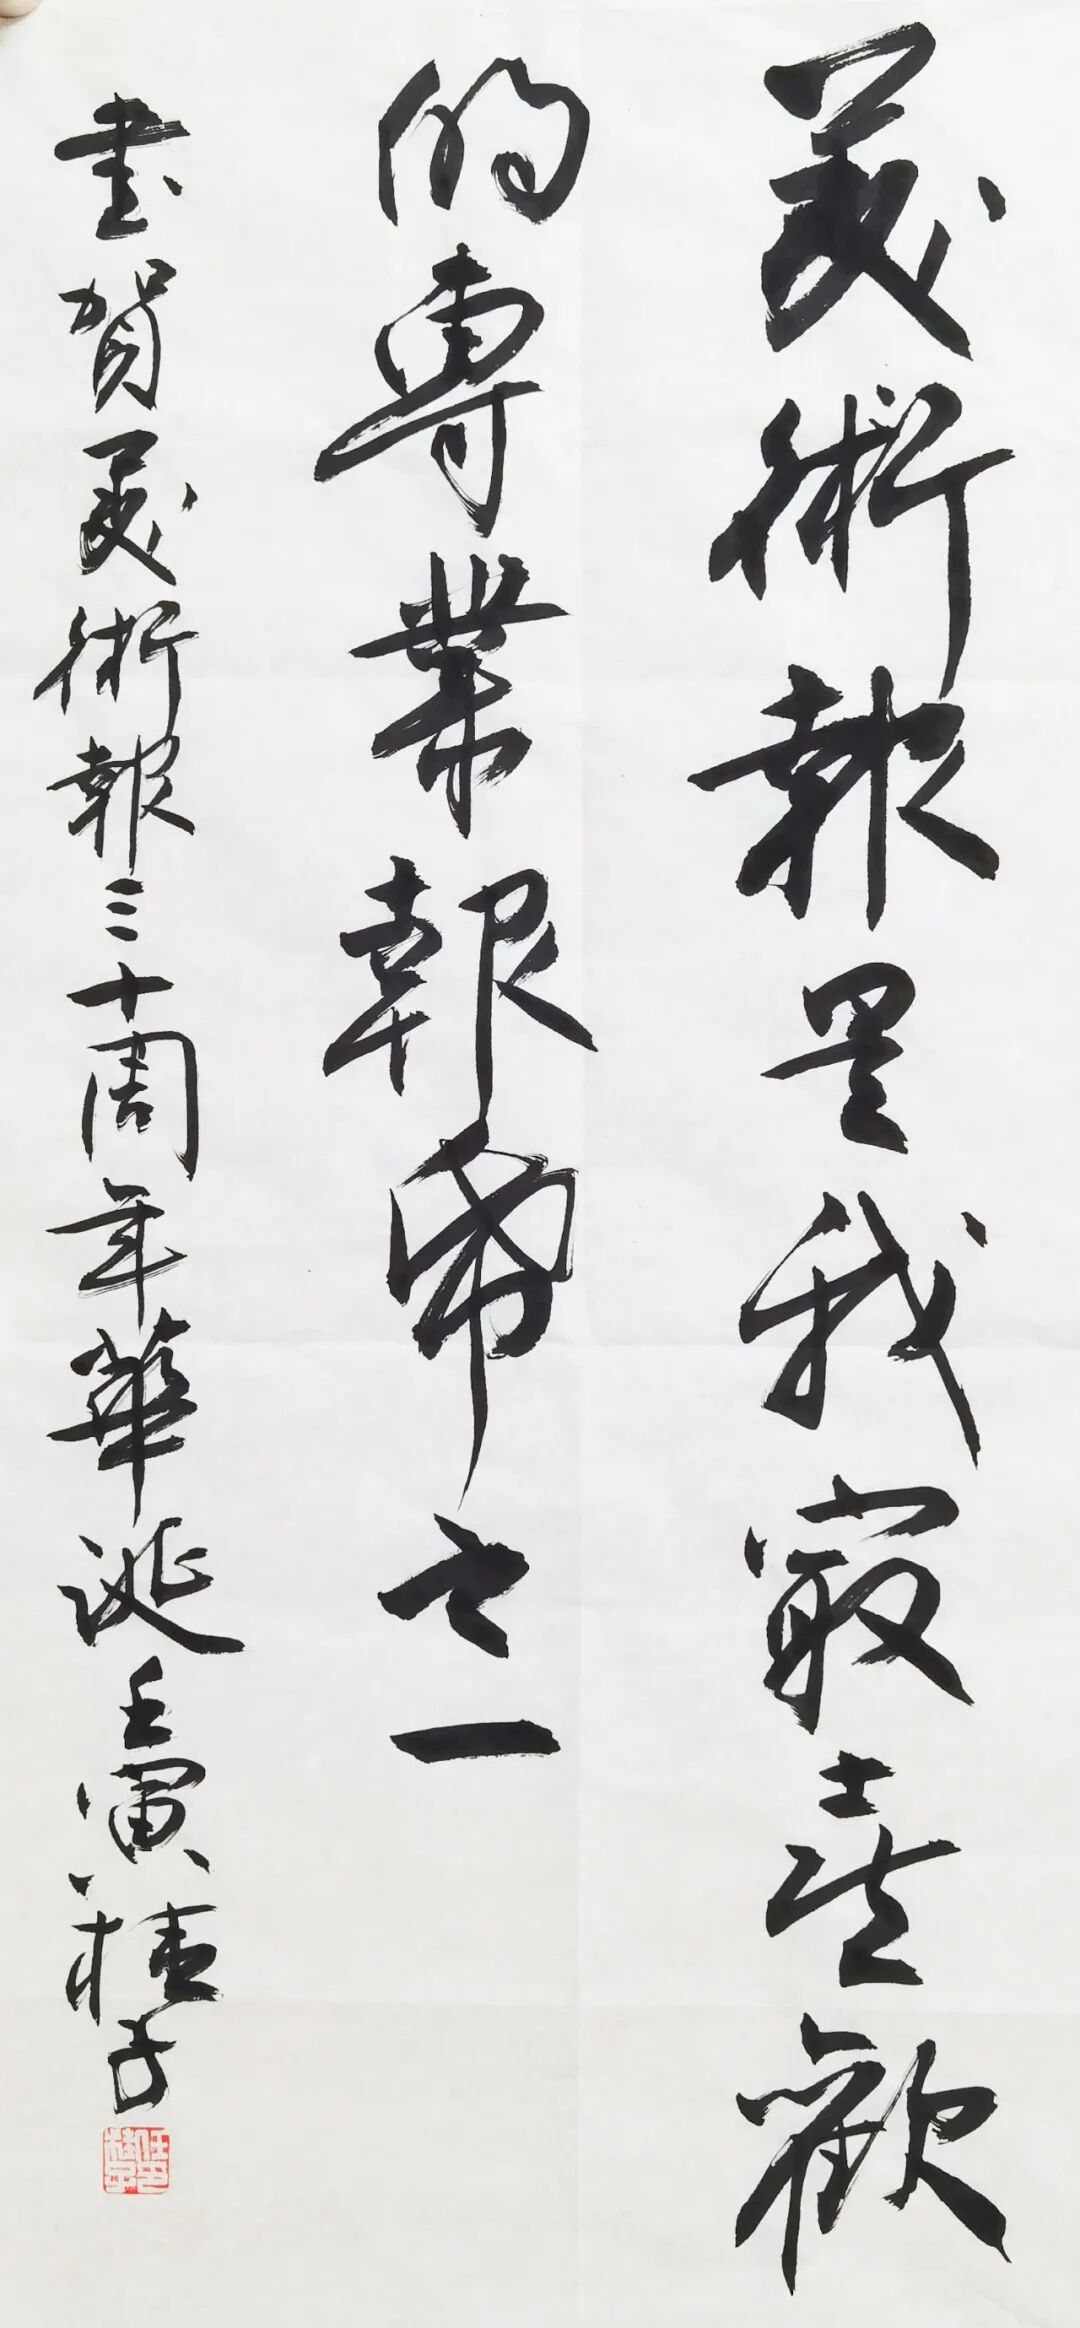 美術報是我最喜歡
的專業報帋之一
書賀美術報三十周年華誕壬寅桂子